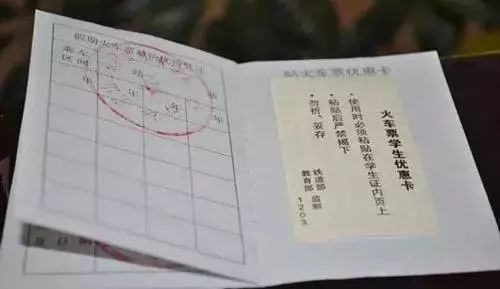 假期火车票
乘车
区间
站
年
年
及日期
贴火车票优惠卡
火车票学生优惠卡
· 使用时必须粘贴在学生证内页上
· 粘贴后严禁揭下
· 勿折、妥存
铁道部 监制
教育部 1203